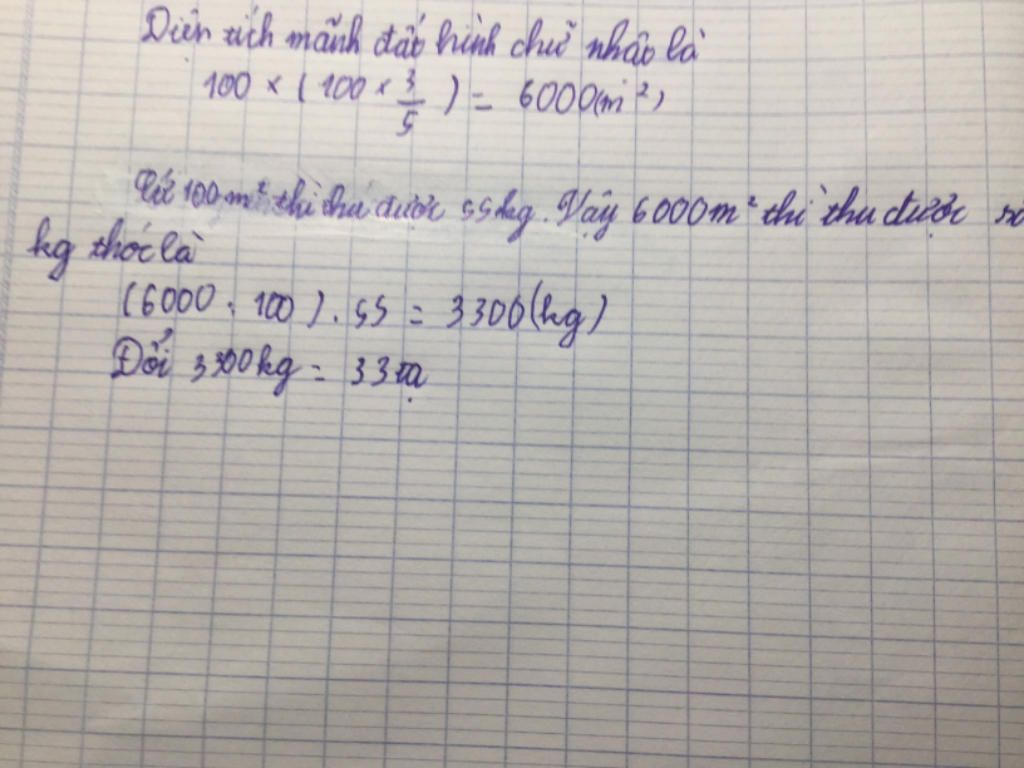 Diện tích mãnh đất hình chữ nhật là
100 × ( 100 × 3/5 ) = 6000(m²)
Cứ 100m² thì thu được 55kg. Vậy 6000m² thì thu được số
kg thóc là
(6000 : 100 ) . 55 = 3300(kg)
Đổi 3300kg = 33 tạ